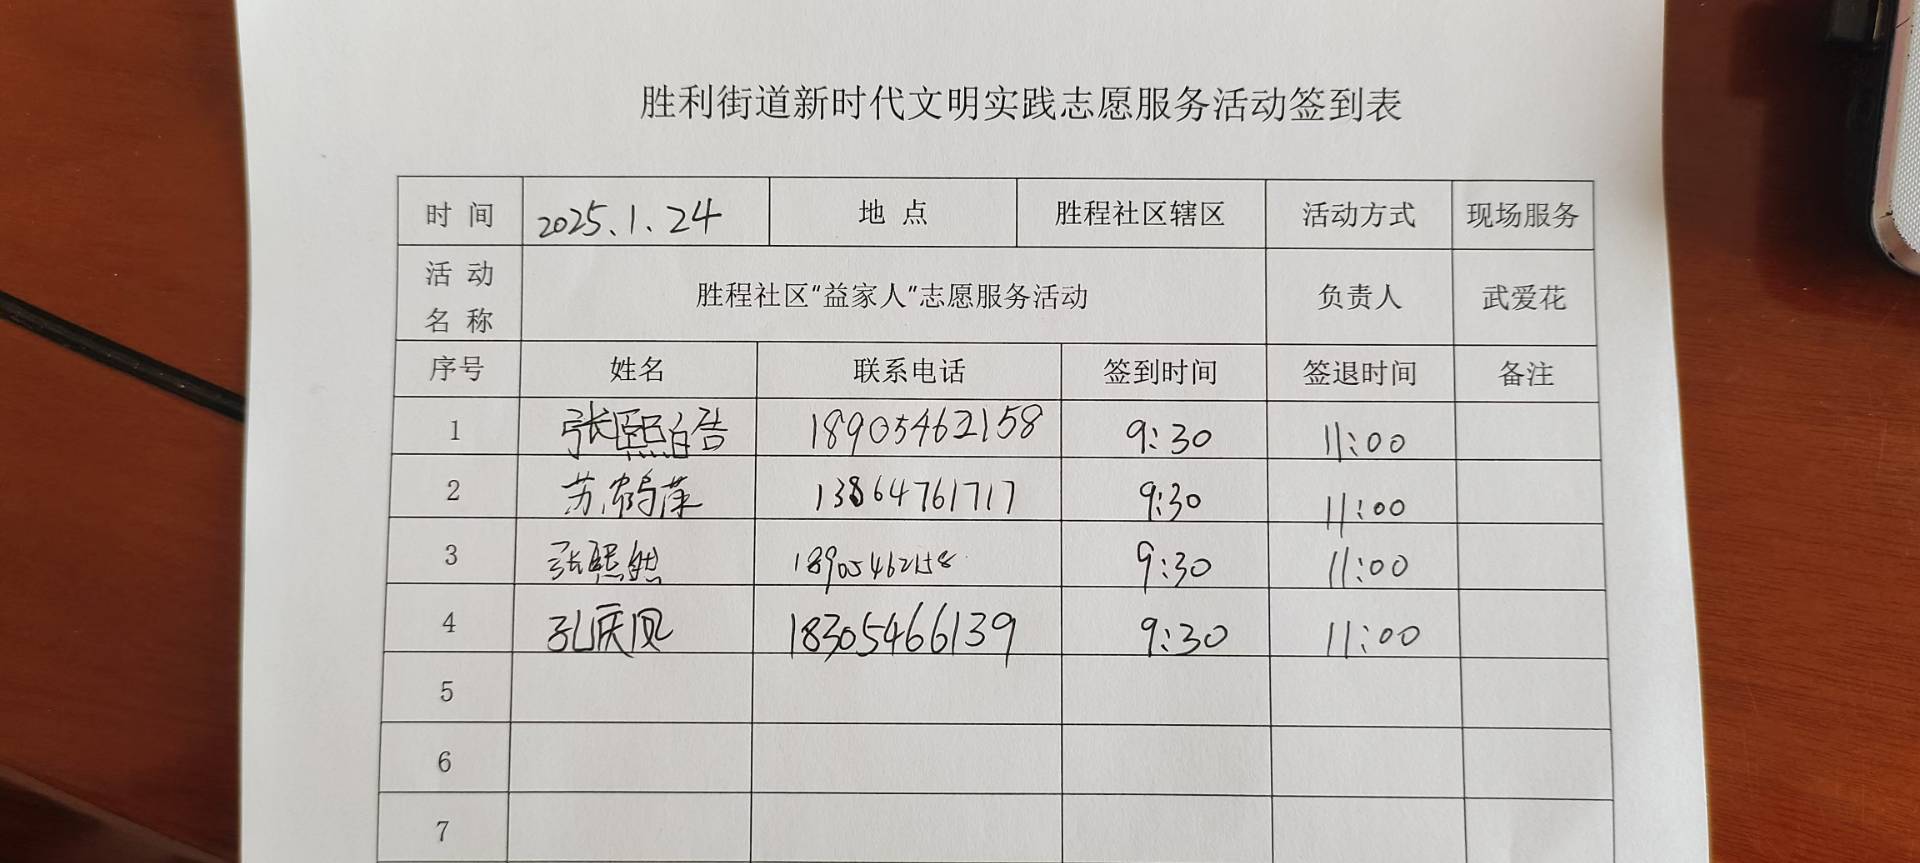 胜利街道新时代文明实践志愿服务活动签到表
时 间 2025.1.24 地 点 胜程社区辖区 活动方式 现场服务
活 动 名 称 胜程社区“益家人”志愿服务活动 负责人 武爱花
序号 姓名 联系电话 签到时间 签退时间 备注
1 张熙皓 18905462158 9:30 11:00
2 苏 13864761717 9:30 11:00
3 张熙然 18905462158 9:30 11:00
4 孔庆凤 18305466139 9:30 11:00
5
6
7